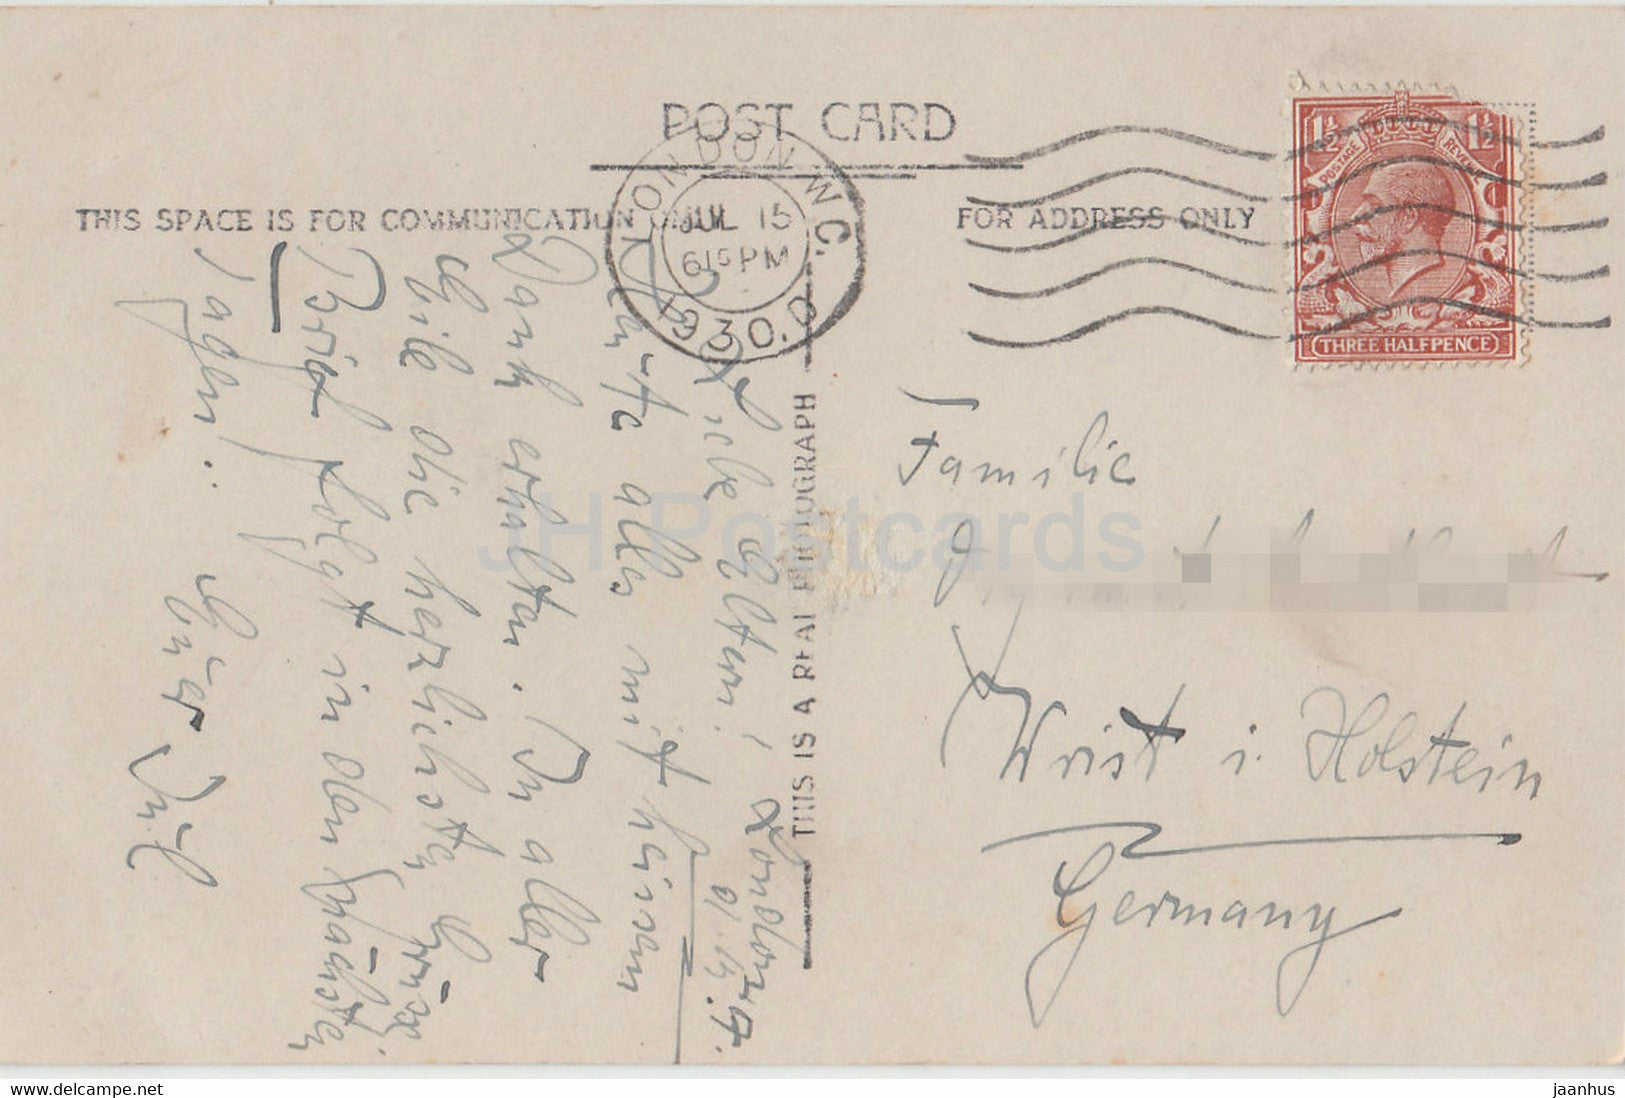 POST CARD
THIS SPACE IS FOR COMMUNICATION
FOR ADDRESS ONLY
LONDON W.C.
JUL 15
615 PM
1930.
1½ 1½
POSTAGE REVENUE
THREE HALFPENCE
THIS IS A REAL PHOTOGRAPH
London, d. 15. 7.
Liebe Eltern!
Heute alles mit
Dank erhalten. In aller
Eile die herzlichsten Grüsse.
Brief folgt in den nächsten
Tagen.
Euer
Familie
Wrist i. Holstein
Germany
JH Postcards
www.delcampe.net
jaanhus